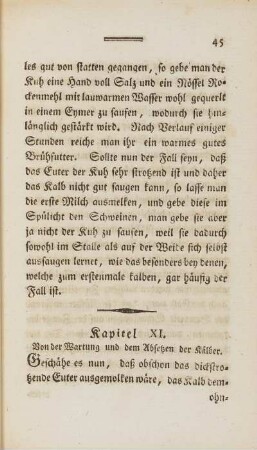 45
les gut von statten gegangen, so gebe man der
Kuh eine Hand voll Salz und ein Nössel Ro-
ckenmehl mit lauwarmen Wasser wohl gequerlt
in einem Eymer zu saufen, wodurch sie hin-
länglich gestärkt wird. Nach Verlauf einiger
Stunden reiche man ihr ein warmes gutes
Brühfutter. Sollte nun der Fall seyn, daß
das Euter der Kuh sehr strotzend ist und daher
das Kalb nicht gut saugen kann, so lasse man
die erste Milch ausmelken, und gebe diese im
Spülicht den Schweinen, man gebe sie aber
ja nicht der Kuh zu saufen, weil sie dadurch
sowohl im Stalle als auf der Weide sich selbst
aussaugen lernet, wie das besonders bey denen,
welche zum erstenmale kalben, gar häufig der
Fall ist.
Kapitel XI.
Von der Wartung und dem Absetzen der Kälber.
Geschähe es nun, daß obschon das dickstro-
tzende Euter ausgemolken wäre, das Kalb dem-
ohn-